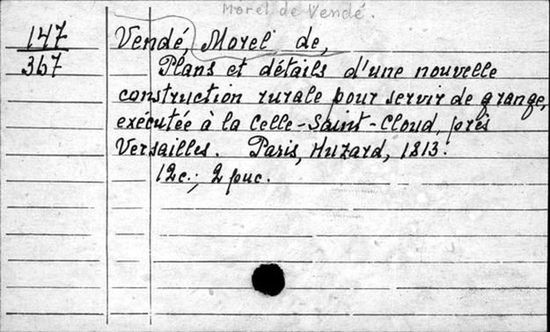 Morel de Vendé.
147
367
Vendé, Morel de,
Plans et détails d'une nouvelle
construction rurale pour servir de grange,
exécutée à la Celle-Saint-Cloud, près
Versailles. Paris, Huzard, 1813.
12с.; 2 рис.